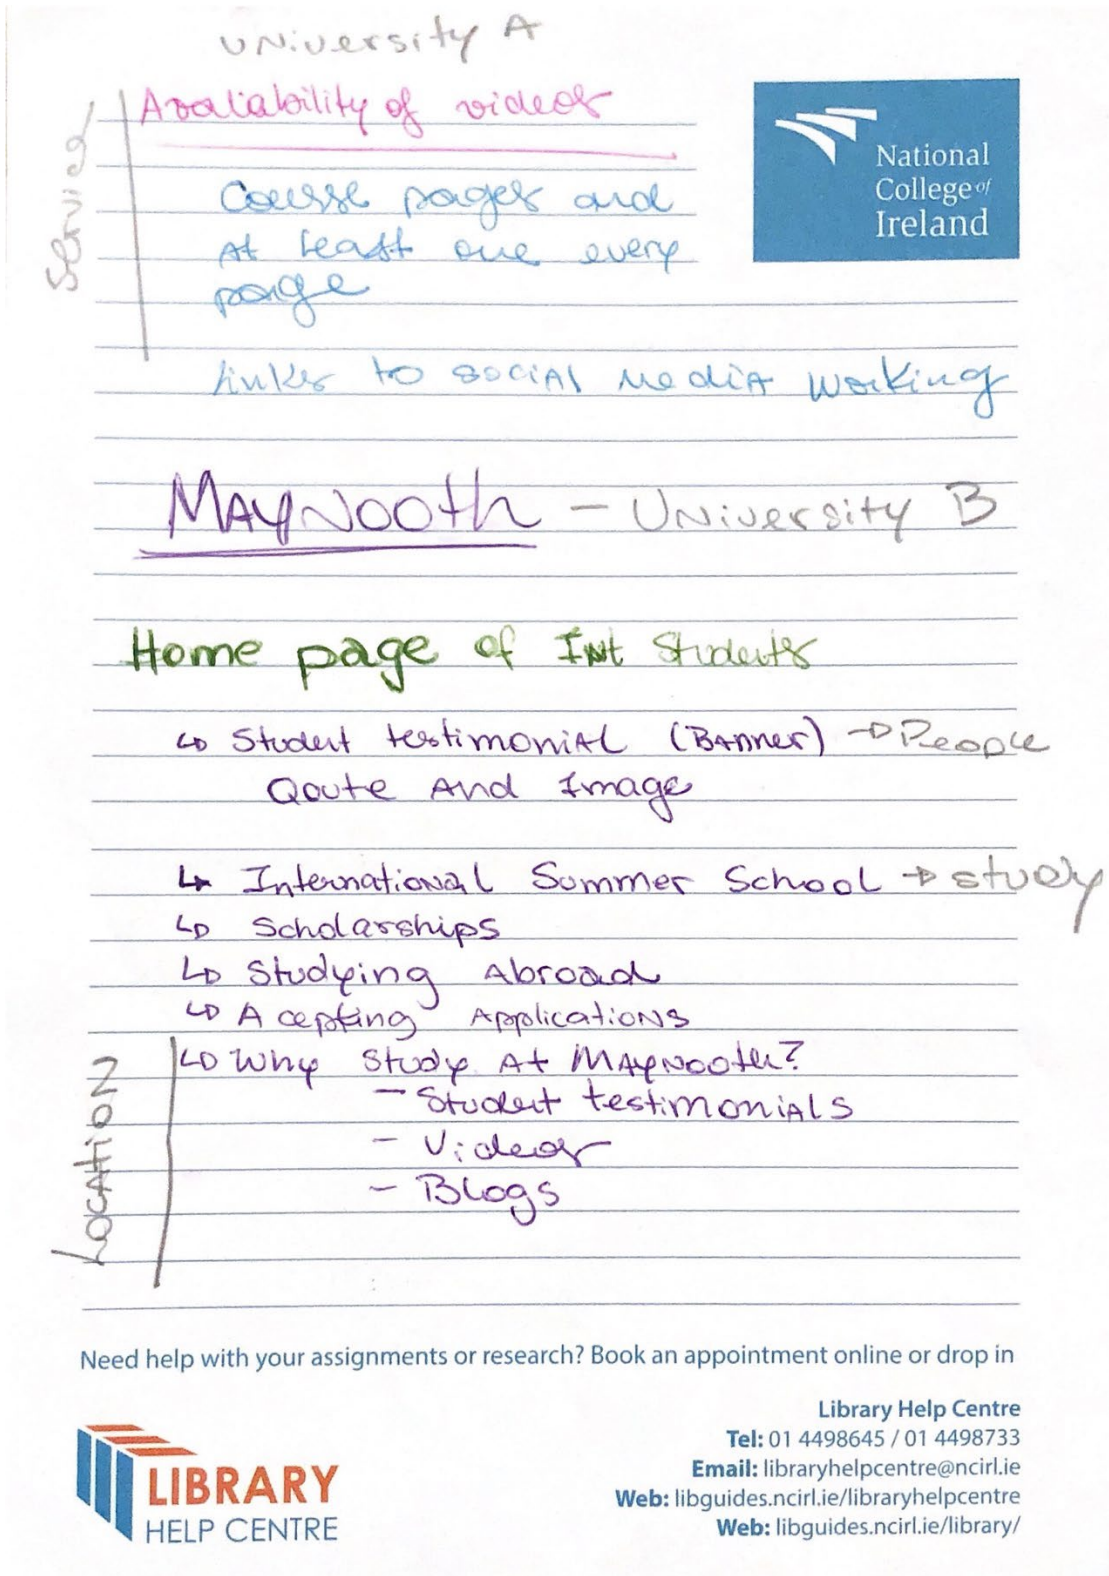 University A
Avaliability of videos
Service
Course pages and
At least one every
page
links to social media working
National
College of
Ireland
MAYNOOth - University B
Home page of Int Students
↳ Student testimonial (Banner) → People
Qoute And Image
↳ International Summer School → study
↳ Scholarships
↳ Studying Abroad
↳ Acepting Applications
↳ Why Study At MAYNOOth?
- Student testimonials
- Videos
- Blogs
Location
Need help with your assignments or research? Book an appointment online or drop in
Library Help Centre
Tel: 01 4498645 / 01 4498733
Email: libraryhelpcentre@ncirl.ie
Web: libguides.ncirl.ie/libraryhelpcentre
Web: libguides.ncirl.ie/library/
LIBRARY
HELP CENTRE